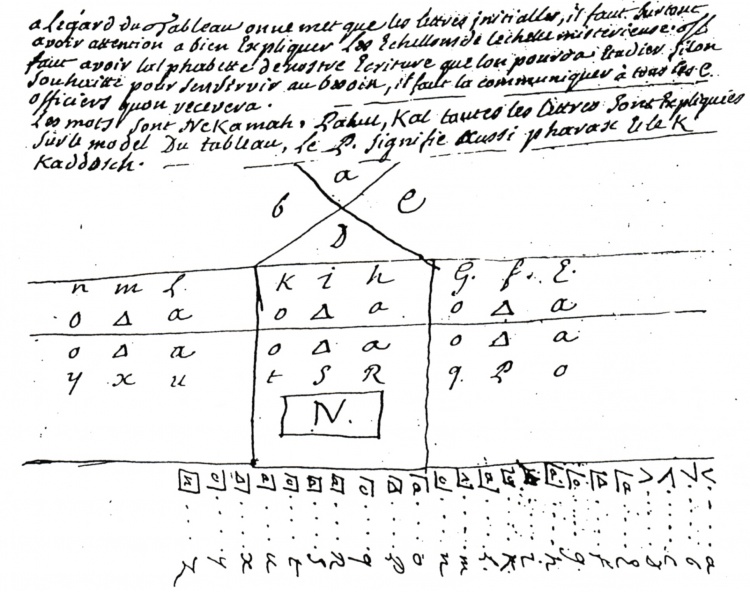 a Légard du Tableau on ne met que les lettres initialles, il faut surtout
avoir attention a bien Expliquer Les Echellons de Lechele misterieuse. off
faut avoir lalphabette de nostre Ecriture que lon pourra Etudier si lon
souhaitte pour s'en servir au besoin, il faut la communiquer à tous les C.
officiers quon recevera.
Les mots sont NeKamah, Pahul, Kal toutes les lettres sont Expliquées
sur le model Du tableau, Le P. signifie aussi pharax Et le K
Kaddosch.
a
b C
D
n m L K i h G. f. E.
o Δ a o Δ a o Δ a
o Δ a o Δ a o Δ a
y x u t S R q P o
N.